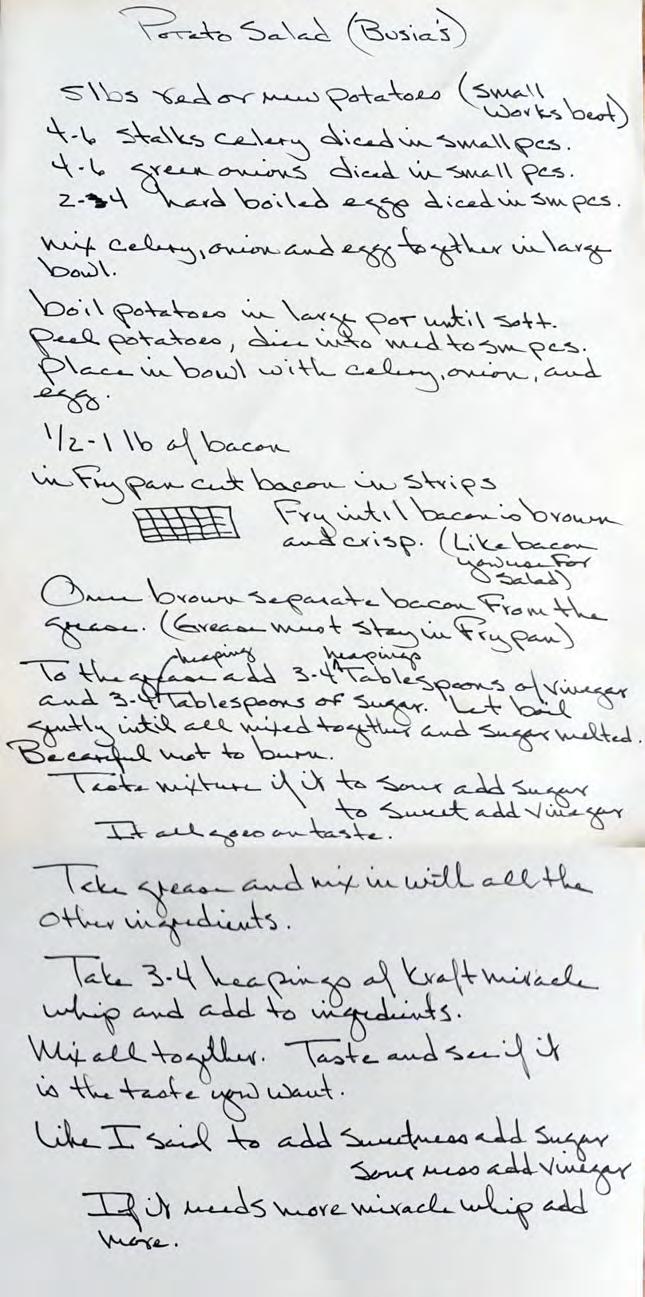 Potato Salad (Busia's)
5 lbs red or new potatoes (small
works best)
4-6 stalks celery diced in small pcs.
4-6 green onions diced in small pcs.
2-4 hard boiled eggs diced in sm pcs.
mix celery, onion and egg together in large
bowl.
boil potatoes in large pot until soft.
peel potatoes, dice into med to sm pcs.
Place in bowl with celery, onion, and
egg.
1/2-1 lb of bacon
in Fry pan cut bacon in strips
Fry intil bacon is brown
and crisp. (Like bacon
you use For
Salad)
Once brown separate bacon From the
grease. (Grease must stay in Fry pan)
heaping heapings
To the grease add 3-4 Tablespoons of vinegar
and 3-4 Tablespoons of sugar. Let boil
gently intil all mixed together and sugar melted.
Be careful not to burn.
Taste mixture if it to sour add sugar
to sweet add vinegar
It all goes on taste.
Take grease and mix in with all the
other ingredients.
Take 3-4 heapings of Kraft miracle
whip and add to ingredients.
Mix all together. Taste and see if it
is the taste you want.
Like I said to add sweetness add sugar
sourness add vinegar
If it needs more miracle whip add
more.